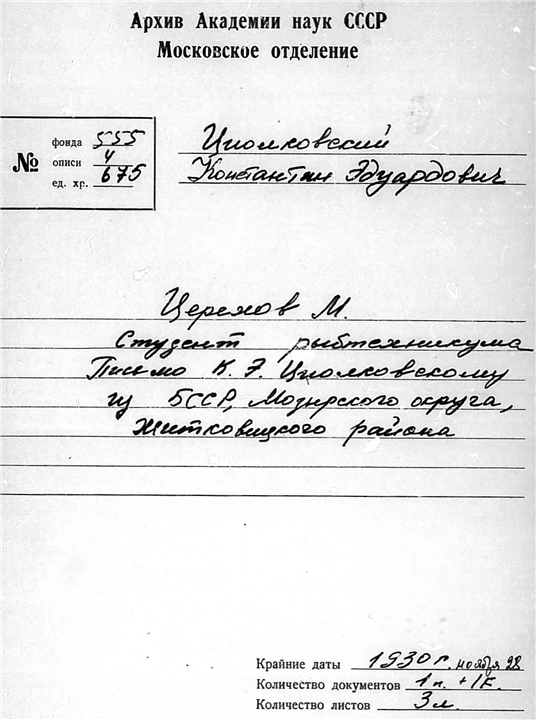 Архив Академии наук СССР
Московское отделение
№
фонда 555
описи 4
ед. хр. 675
Циолковский
Константин Эдуардович
М.
Студент рыбтехникума
Письмо К. Э. Циолковскому
из БССР, Мозырского округа,
Житковицкого района
Крайние даты 1930 г. ноября 28
Количество документов 1 п. + 1 к.
Количество листов 3 л.